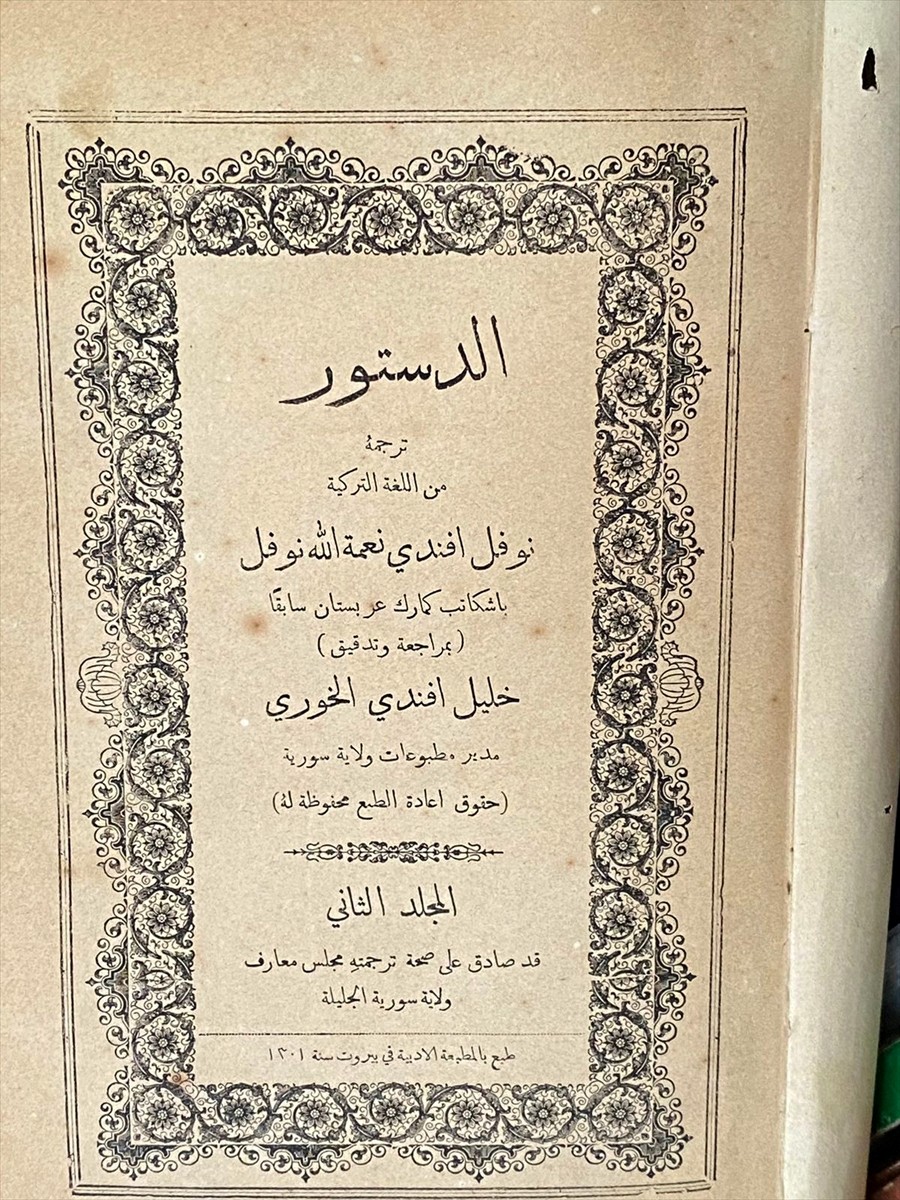 الدستور
ترجمهُ
من اللغة التركية
نوفل افندي نعمة الله نوفل
باشكاتب كمارك عربستان سابقًا
(بمراجعة وتدقيق)
خليل افندي الخوري
مدير مطبوعات ولاية سورية
(حقوق اعادة الطبع محفوظة لهُ)
المجلد الثاني
قد صادق على صحة ترجمتهِ مجلس معارف
ولاية سورية الجليلة
طبع بالمطبعة الادبية في بيروت سنة ١٣٠١